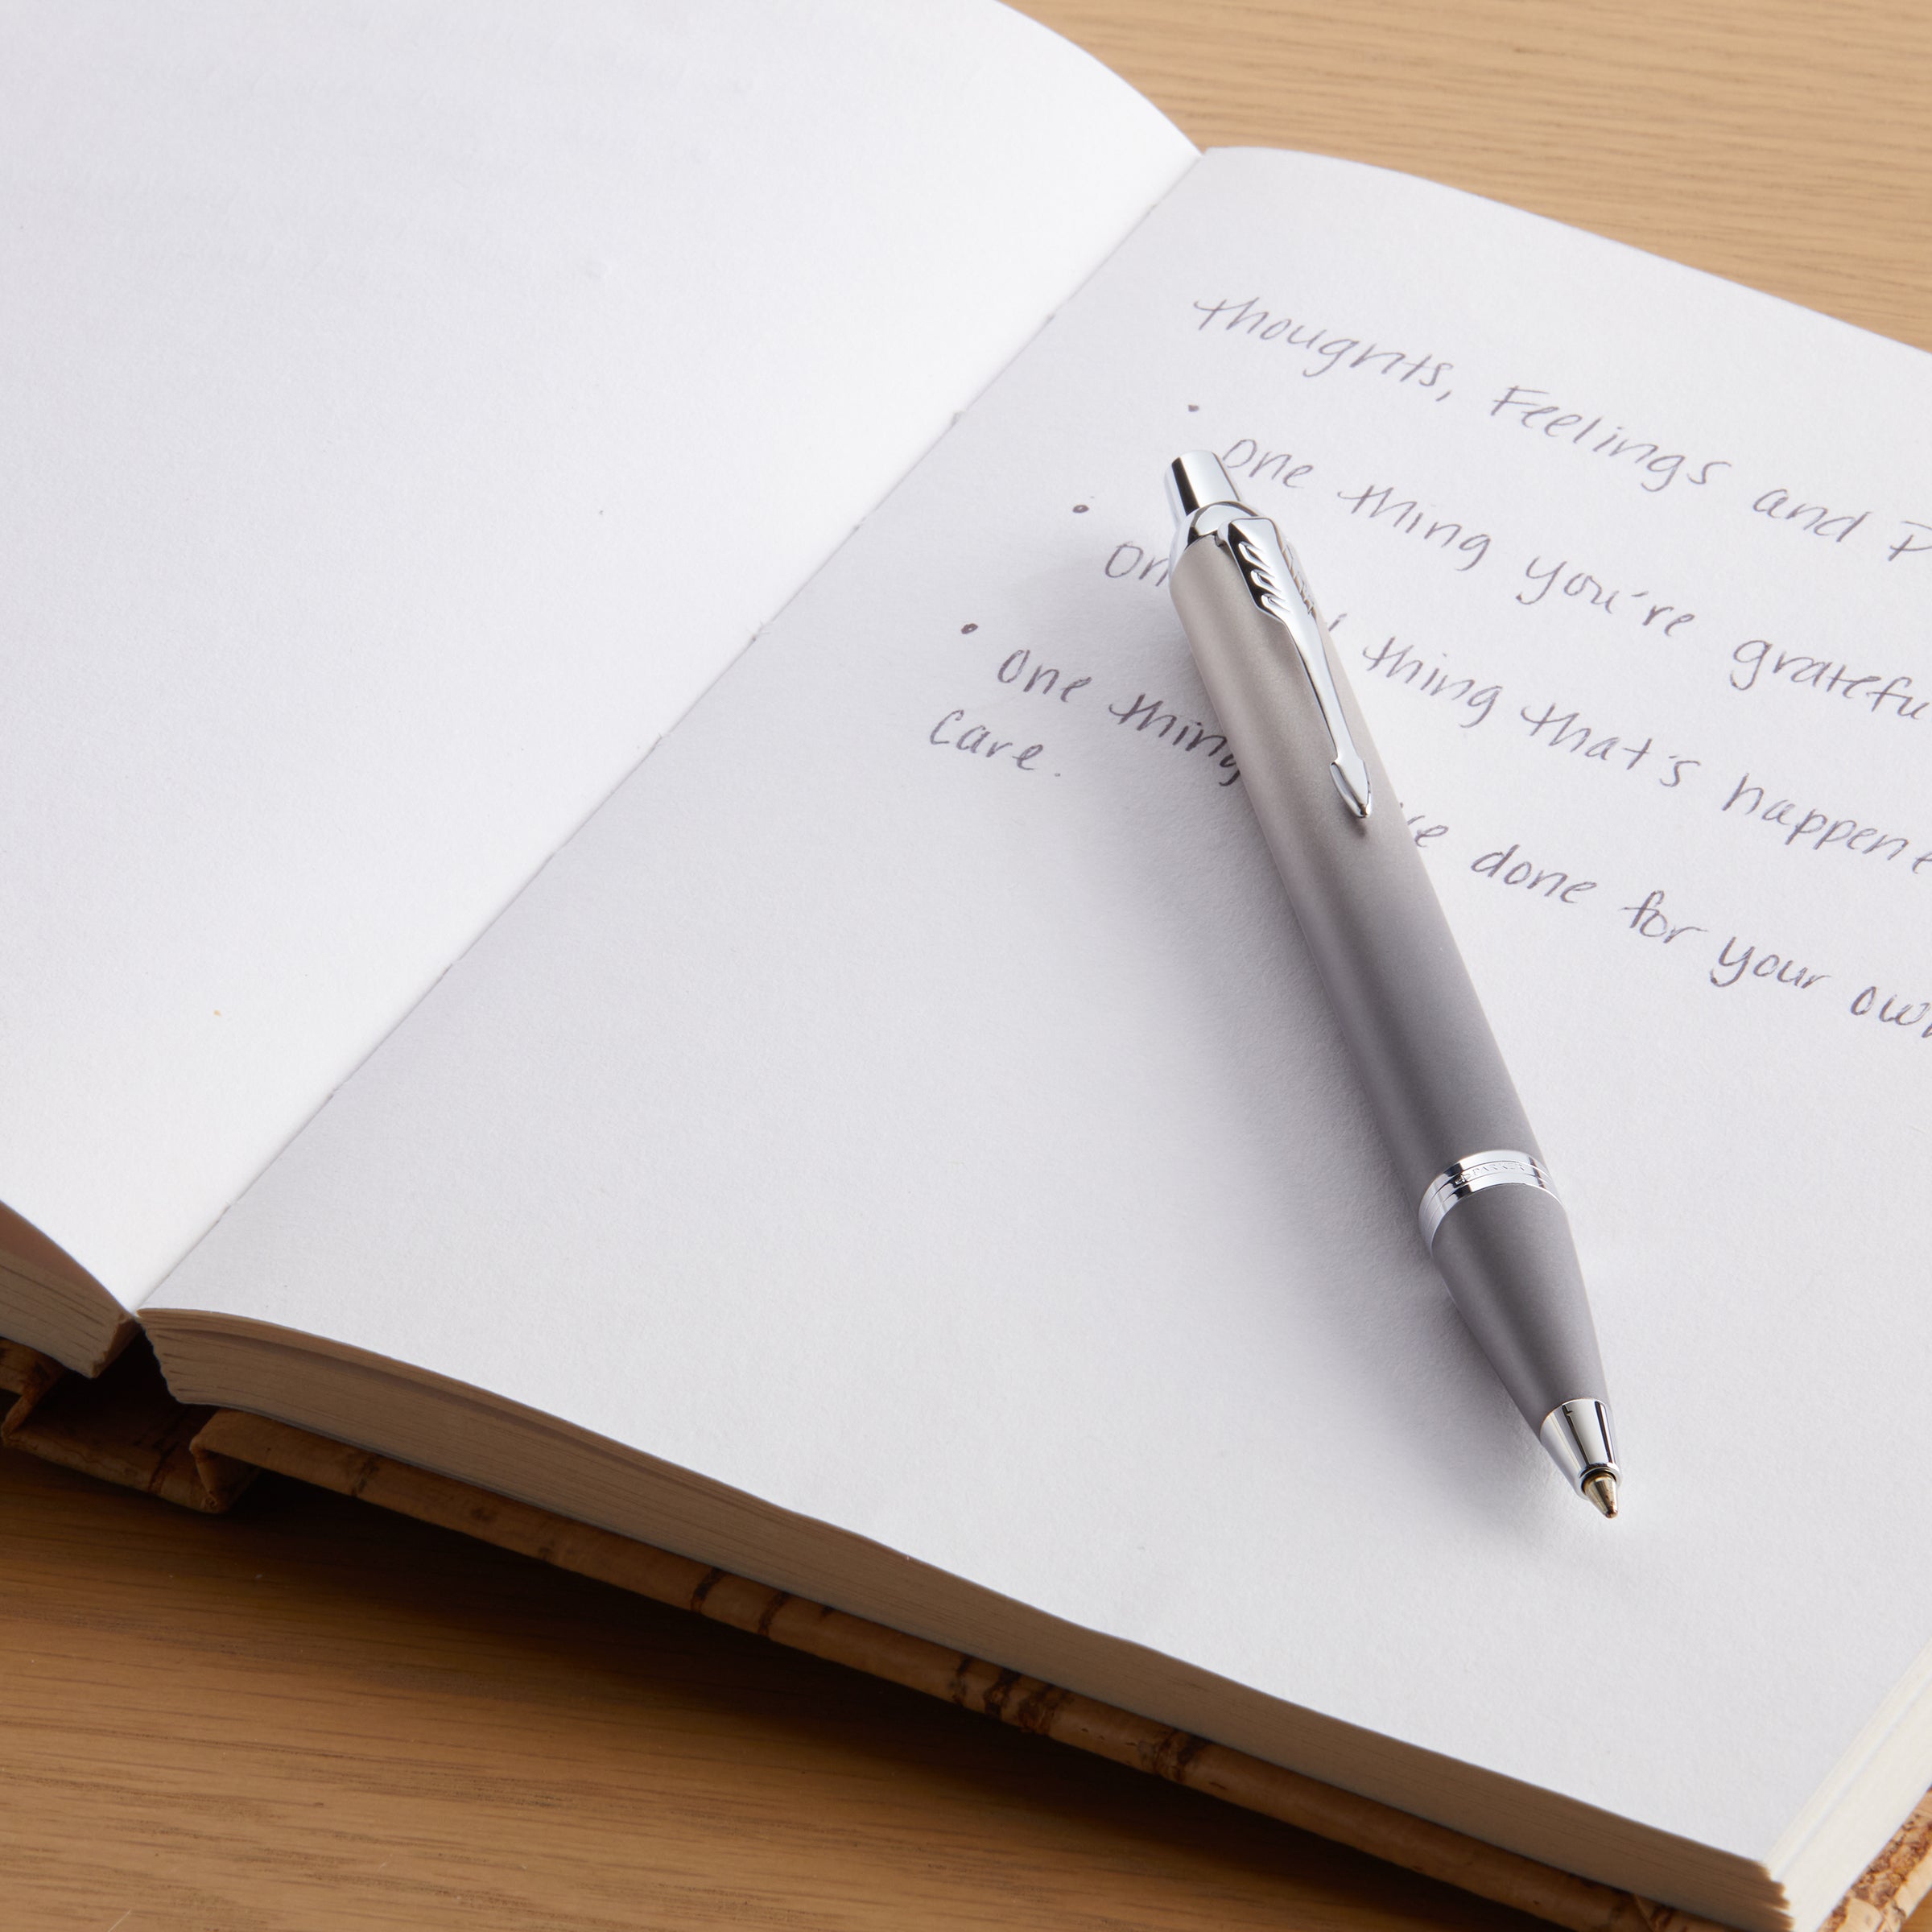 thoughts, Feelings and P
• One thing you're gratefu
• On thing that's happene
• One thing 've done for your own
care.
PARKER